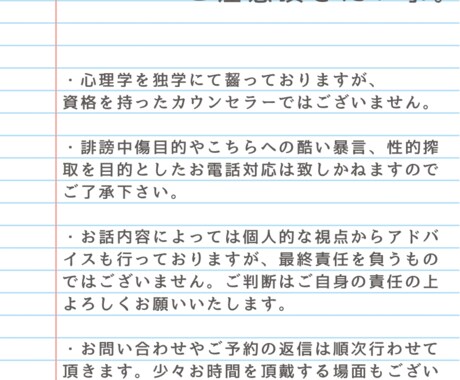 ・心理学を独学にて齧っておりますが、
資格を持ったカウンセラーではございません。
・誹謗中傷目的やこちらへの酷い暴言、性的搾
取を目的としたお電話対応は致しかねますので
ご了承下さい。
・お話内容によっては個人的な視点からアドバ
イスも行っておりますが、最終責任を負うもの
ではございません。ご判断はご自身の責任の上
よろしくお願いいたします。
・お問い合わせやご予約の返信は順次行わせて
頂きます。少々お時間を頂戴する場面もござい